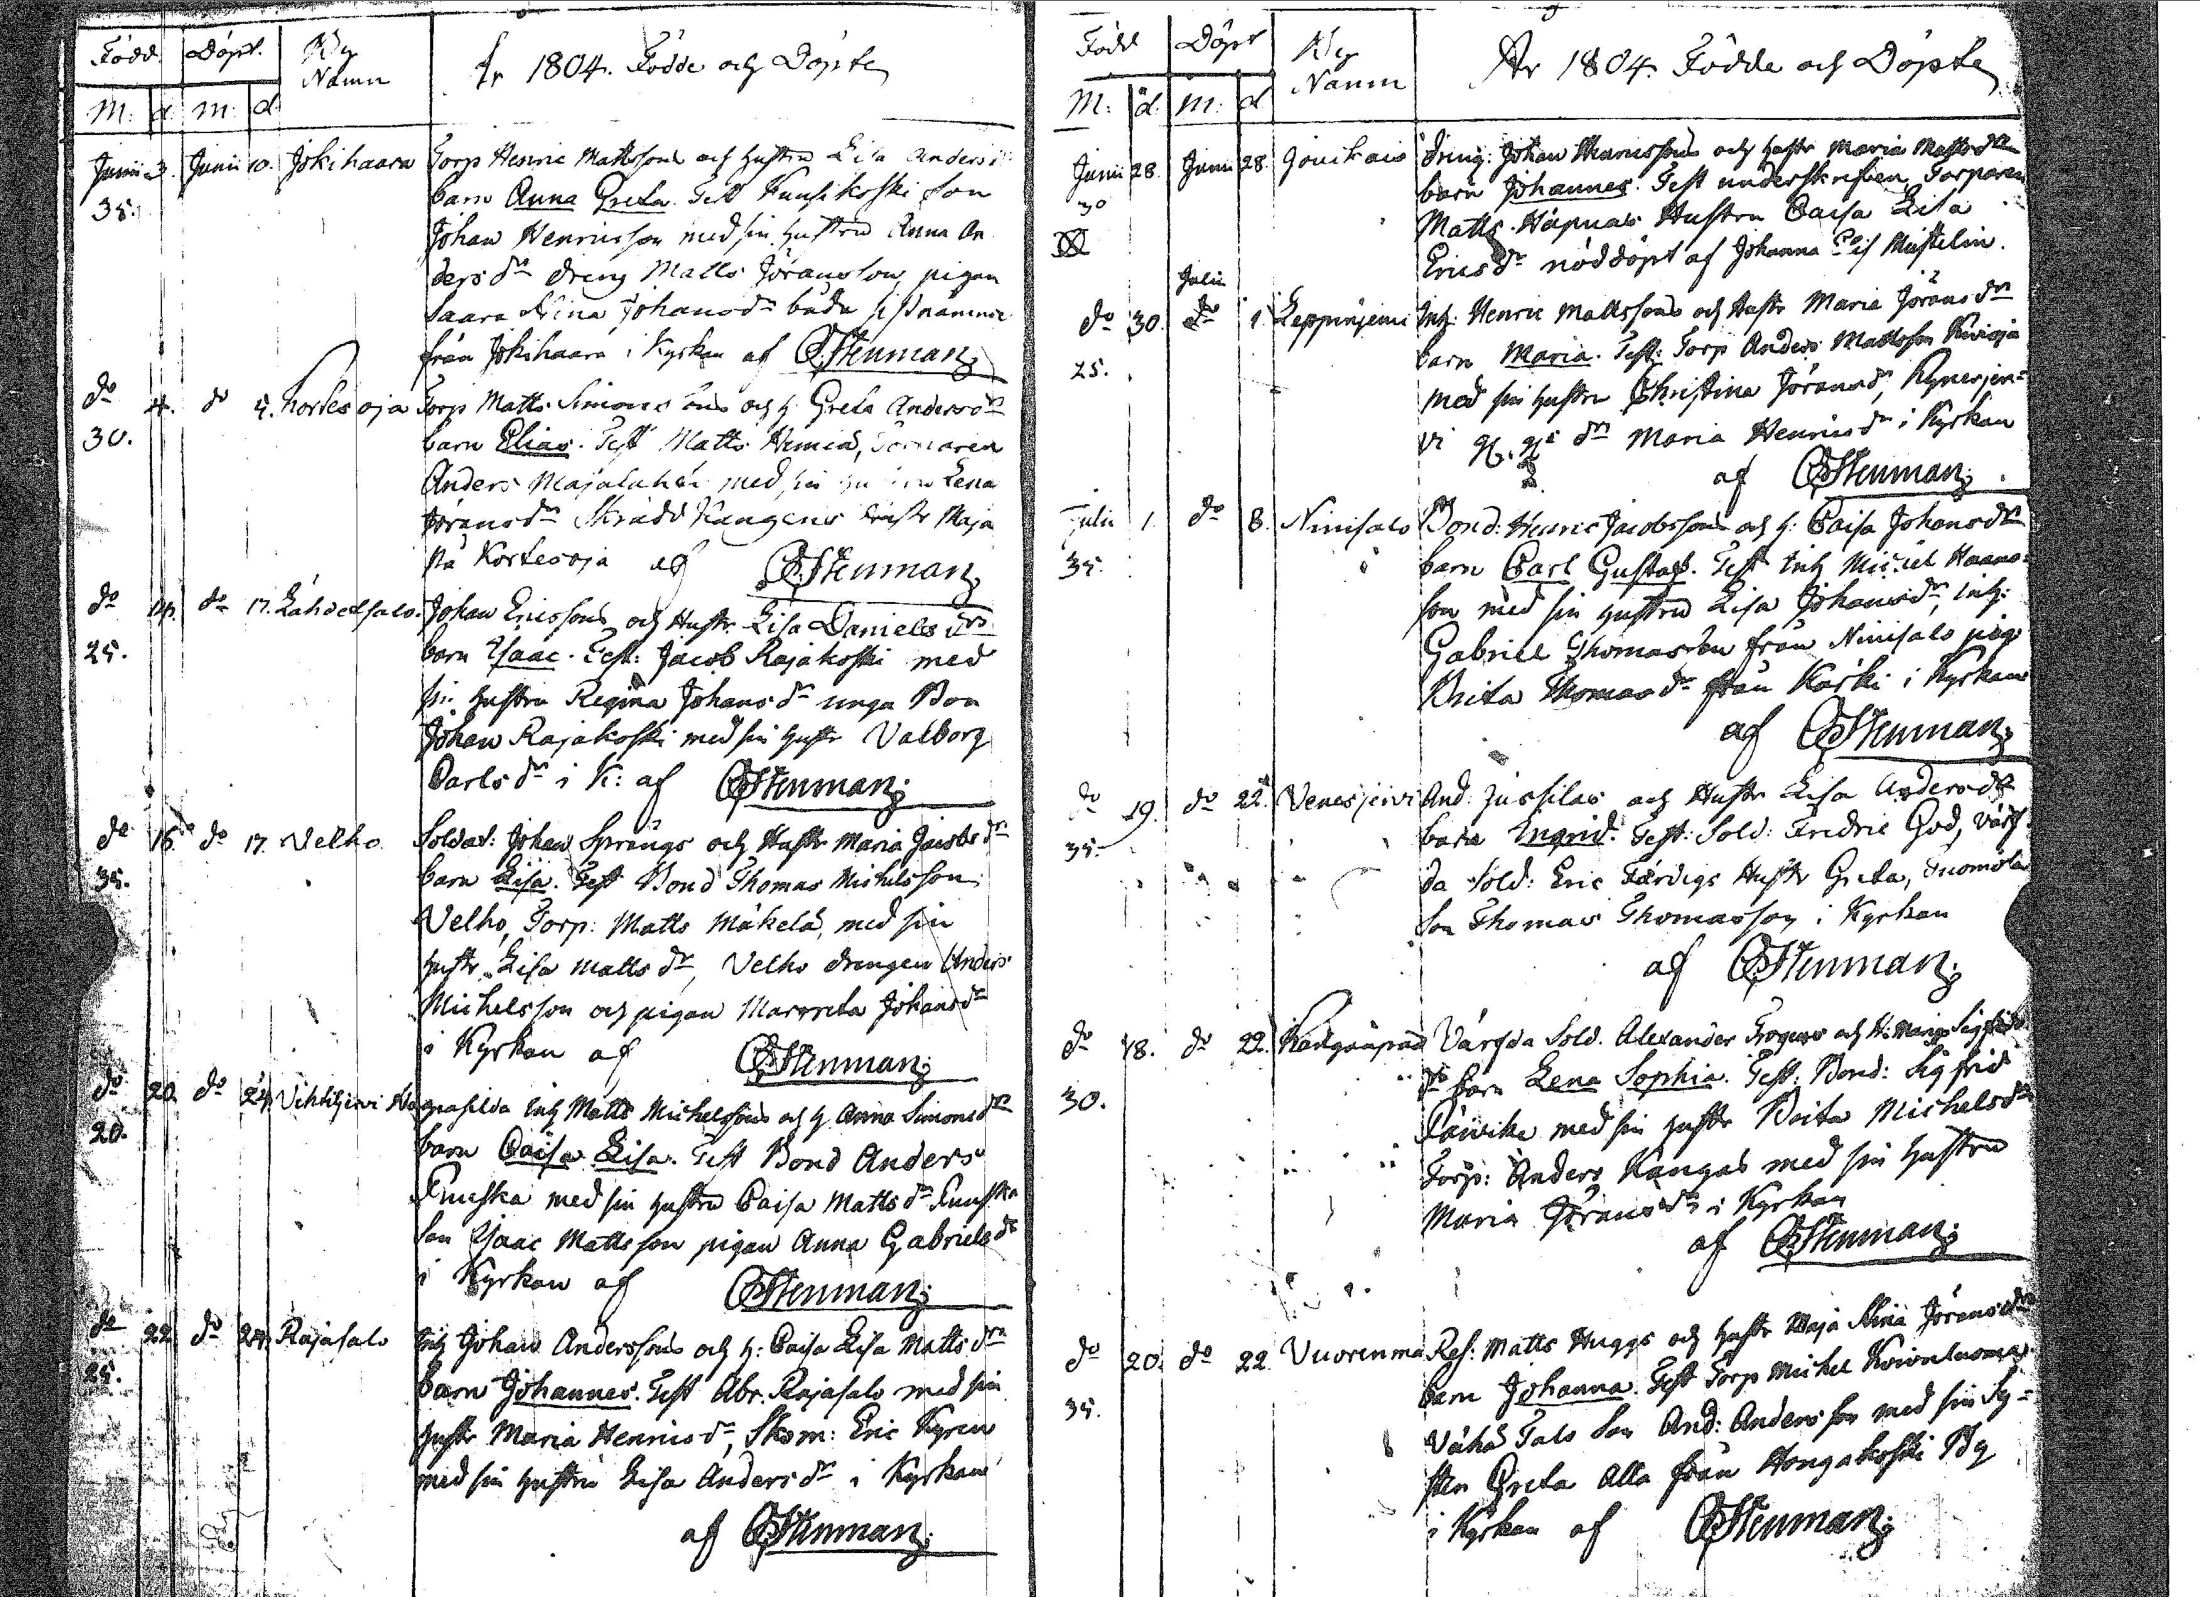 Född. Döpt. By Namn År 1804. Födde och Döpte
M: d. m: d.
Junii 3. Junii 10. Jokihaara Torp Henric Mattssons och hustru Lisa Anders
35. barn Anna Greta. Test Kuusikoski son
Johan Henricsson med sin hustru Anna An
ders dr dreng Matts Jöransson, pigan
Saara Stina Johansdr båda sistnämnde
från Jokihaara i Kyrkan af CGStenman
do 4. do 4. Kortesoja Torp Matts Simons sons och h Greta Andersdrs
30. barn Elias. Test Matts Hemiä, Torparen
Anders Majaluhta med sin hustru Lena
Jöransdr Skrädd Kangens hustr Maja
på Kortesoja af CGStenman
do do 17. Lähdesalo. Johan Ericssons och Hustr Lisa Daniels drs
25. barn Isaac. Test: Jacob Rajakoski med
sin hustru Regina Johansdr unga Bon
Johan Rajakoski med sin hustr Valborg
Carlsdr i K: af CGStenman
do 16 do 17. Velho. Soldat: Johan Sprängs och Hustr Maria Jacobsdrs
35. barn Lisa. Test Bond Thomas Michelsson
Velho, Torp: Matts Mäkelä, med sin
hustr Lisa Mattsdr, Velho drengen Anders
Michelsson och pigan Margreta Johansdr
i Kyrkan af CGStenman
do 20. do 24. Vihtijervi Inh Matts Michelssons och h Anna Simonsdrs
20. barn Caisa Lisa. Test Bond Anders
Runska med sin hustru Caisa Mattsdr Runska
son Isaac Mattsson pigan Anna Gabrielsdr
i Kyrkan af CGStenman
do 22. do 24. Rajasalo Inh Johan Anderssons och h: Caisa Lisa Mattsdrs
25. barn Johannes. Test Abr. Rajasalo med sin
hustr Maria Henricsdr, Skom: Eric Kyren
med sin hustru Lisa Andersdr i Kyrkan
af CGStenman
Född Döpt By Namn År 1804. Födde och Döpte
M: d. m: d
Junii 28. Junii 28. Dreng: Johan Henricssons och hustr Maria Mattsdrs
30 barn Johannes. Test underskrefven Torparen
Matts Häpuas Hustru Caisa Lisa
Ericsdr nöddöpt af Johanna Mustelin.
do 30. Julii do 1. Leppäjerni Inh: Henric Mattssons och Hustr Maria Jöransdrs
25. barn Maria. Test: Torp Anders Mattsson Kivioja
med sin hustru Christina Jöransdr, Kynesjer=
vi dr Maria Henricsdr i Kyrkan
af CGStenman
Julii 1. do 8. Ninisalo Bond: Henric Jacobssons och h: Caisa Johansdrs
35. barn Carl Gustaf. Test Inh Michel Hans=
son med sin hustru Lisa Johansdr, Inh:
Gabriel Thomasson från Ninisalo pig:
Brita Thomasdr från Käski i Kyrkan
af CGStenman
do 19. do 22. Venesjervi And. Jussilas och Hustr Lisa Andersdrs
35. barn Ingrid. Test: Sold: Fredric God, värf
da Sold: Eric Färdigs Hustr Greta, Tuomola
Son Thomas Thomasson i Kyrkan
af CGStenman
do 18. do 22. Kangaspää Värfda Sold. Alexander Trogens och h: Maria Sigfrids
30. drs barn Lena Sophia. Test: Bond: Sigfrid
med sin hustr Brita Michelsdr
Torp: Anders Kangas med sin hustru
Maria Jöransdr i Kyrkan
af CGStenman
do 20. do 22. Vuorenmaa Res: Matts Huggs och hustr Maja Stina Jöransdrs
35. barn Johanna. Test Torp Michel Koivuluoma
Vähä Talo Son And: Andersson med sin Sy=
ster Greta alla från Hongakoski By
i Kyrkan af CGStenman